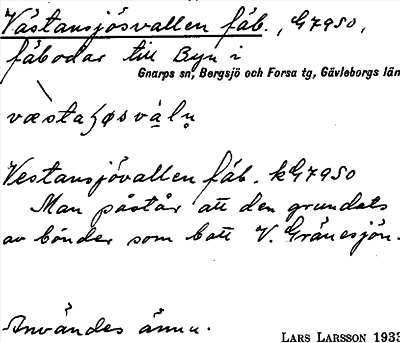 Västansjösvallen fäb., G7950,
fäbodar till Byn i
Gnarps sn, Bergsjö och Forsa tg, Gävleborgs län
væstaʃøsvạlṇ
Vestansjövallen fäb. kG7950
Man påstår att den grundats
av bönder som bott V. Gränsjön.
Användes ännu.
LARS LARSSON 1933